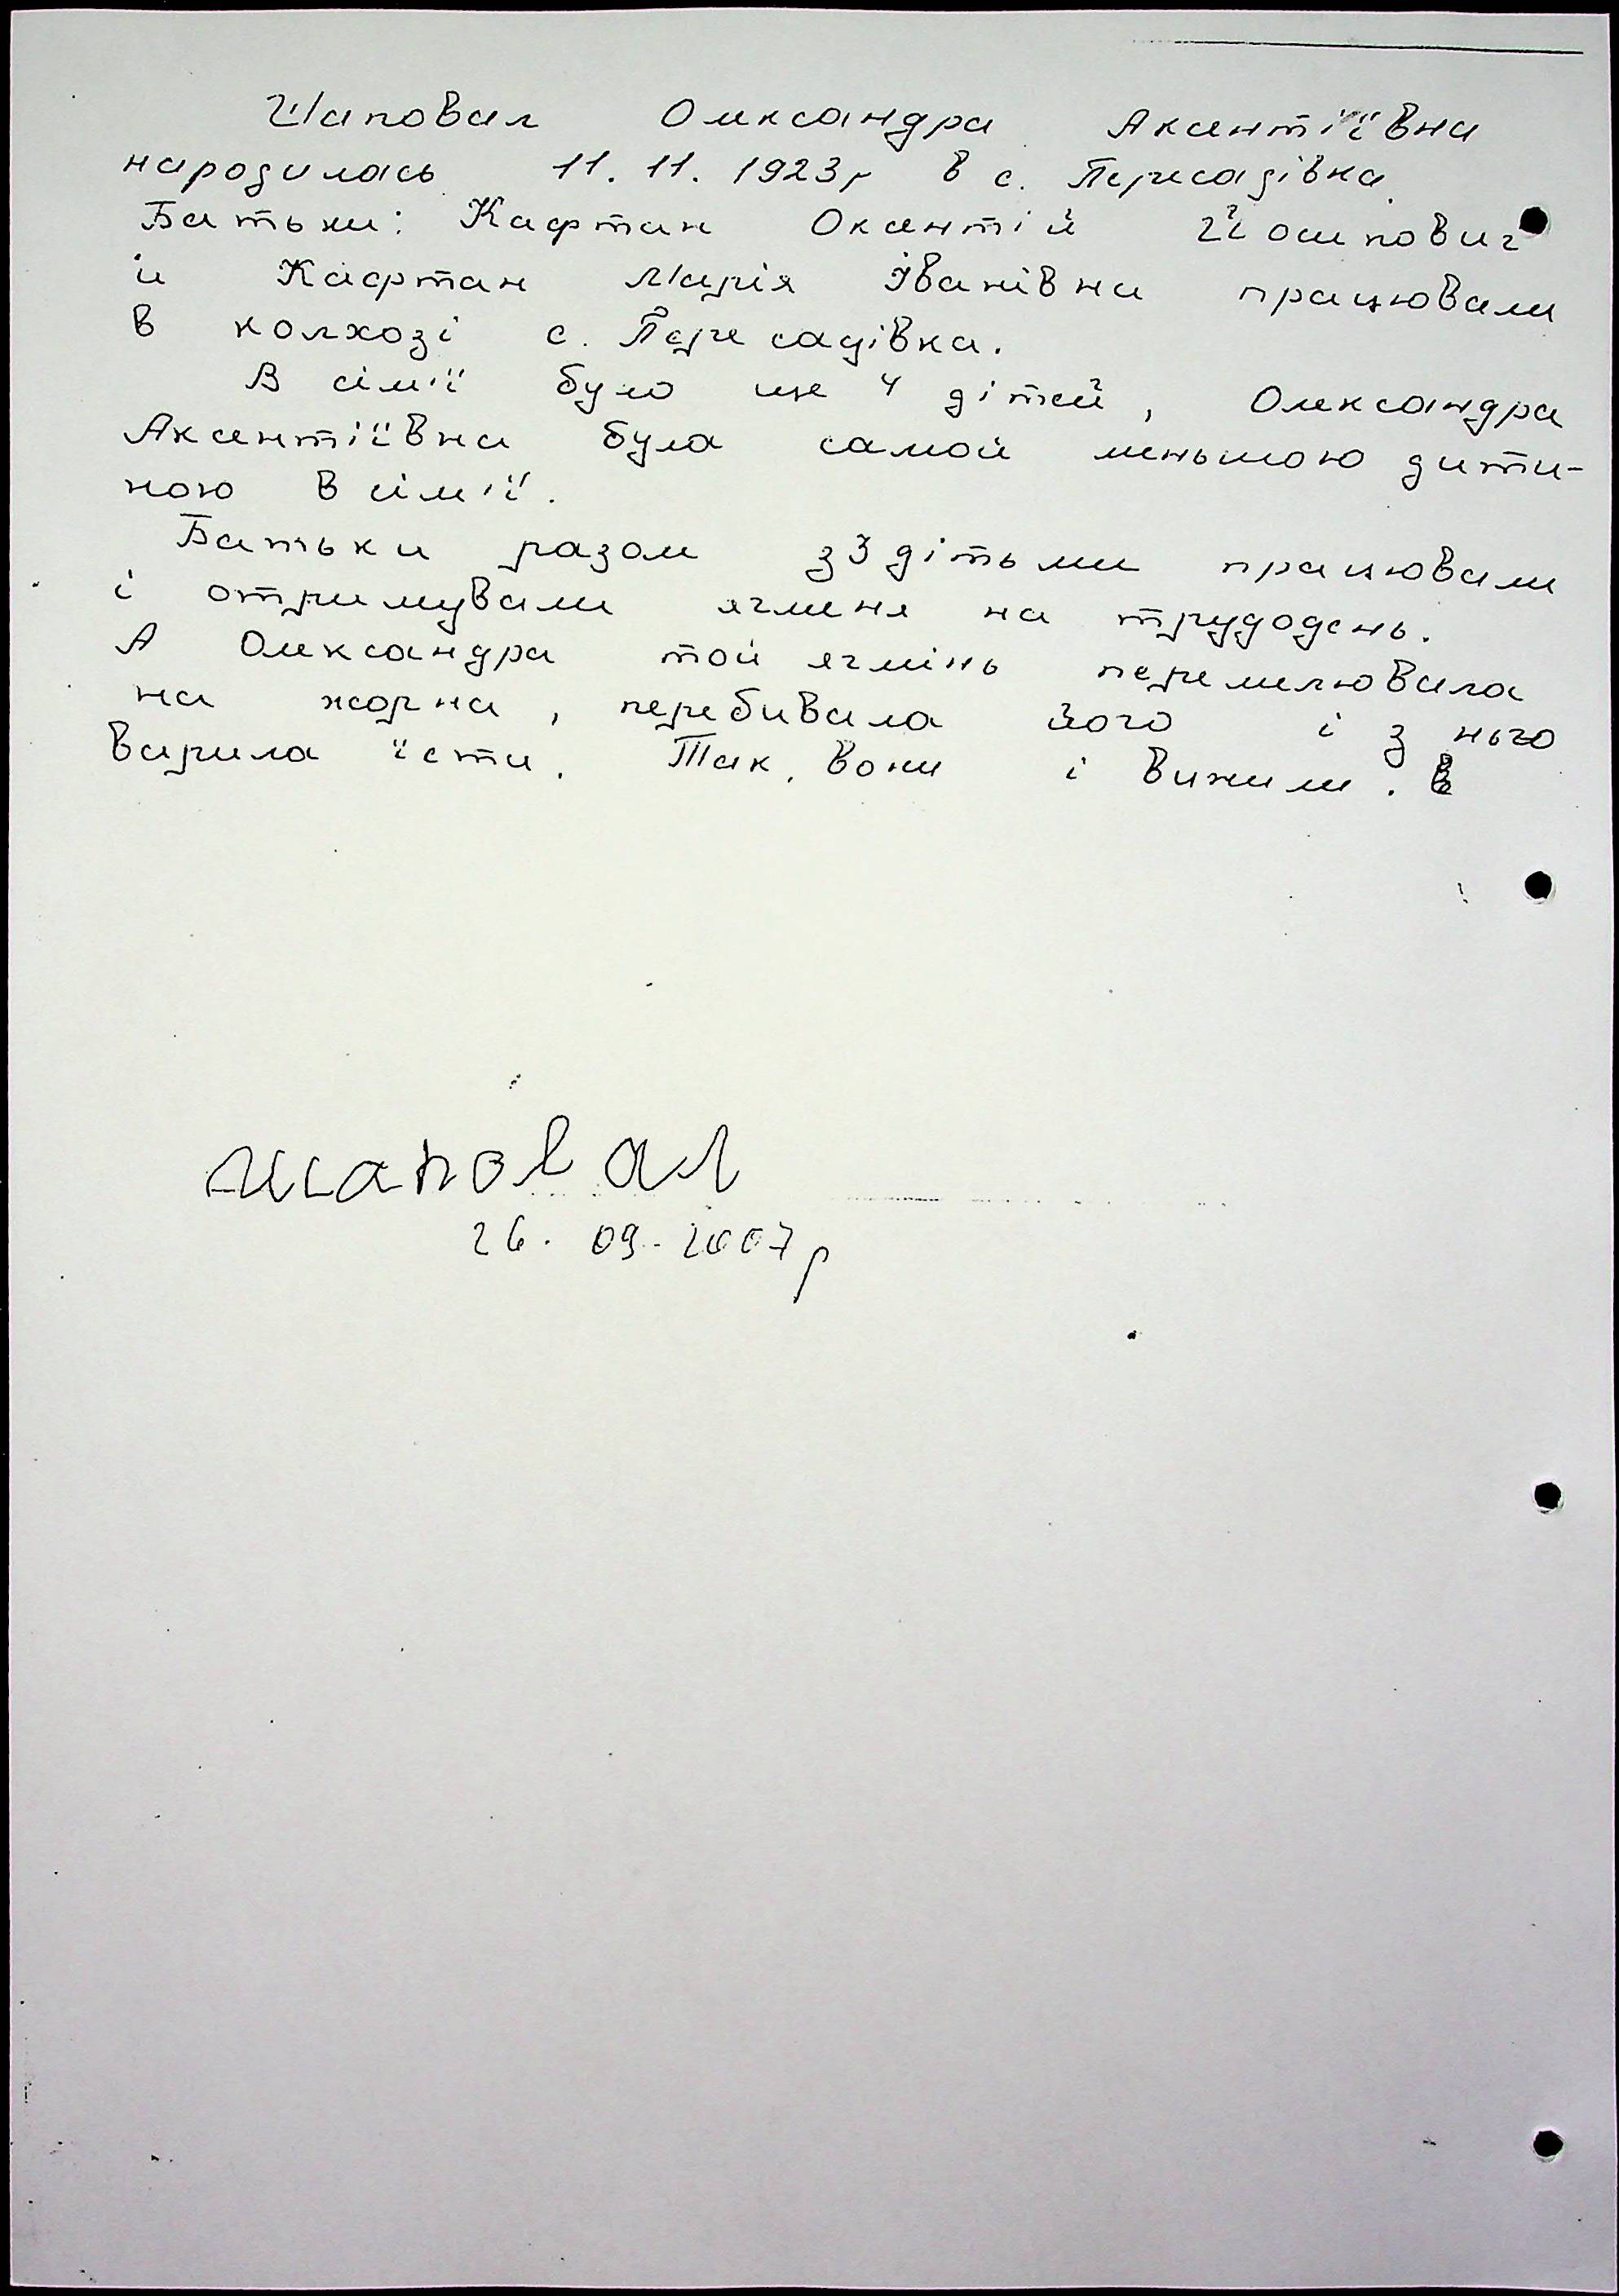 Шаповал Олександра Аксентіївна
народилась 11. 11. 1923р в с. Пересадівка
Батьки: Кафтан Оксентій Йосипович
й Кафтан Марія Іванівна працювали
в колхозі с. Пересадівка.
В сім'ї було ще 4 дітей, Олександра
Аксентіївна була самой меньшою дити-
ною в сім'ї.
Батьки разом з 3 дітьми працювали
і отримували ячменя на трудодень.
А Олександра той ячмінь перемелювала
на жорна, перебивала його і з нього
варила їсти. Так вони і вижили.
Шаповал
26. 09. 2007р